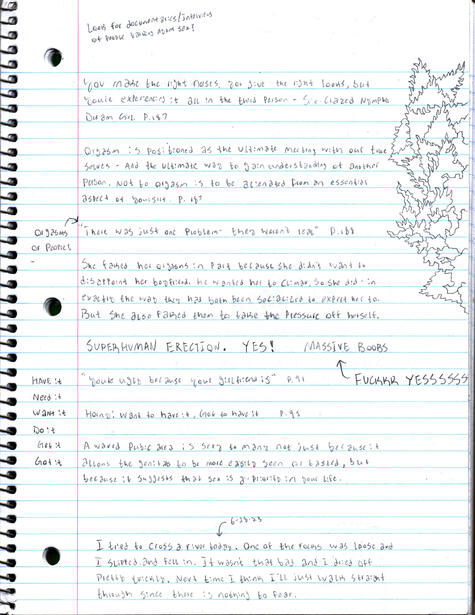 Look for documentaries/interviews
of people talking about sex!
"You make the right noises, you give the right looks, but
you're experiencing it all in the third person - Sex Crazed Nympho
Dream Girl P.187
Orgasm is positioned as the ultimate meeting with our true
selves - And the ultimate way to gain understanding of another
person. Not to orgasm is to be alienated from an essential
aspect of yourself. P.187
Orgasms
or People?
"There was just one problem - they weren't real" P.188
She faked her orgasms in part because she didn't want to
disappoint her boyfriend. He wanted her to climax, so she did - in
exactly the way they had both been socialized to expect her to.
But she also faked them to take the pressure off herself.
SUPERHUMAN ERECTION. YES! MASSIVE BOOBS
FUCKKR YESSSSSS
HAVE it
Need it
Want it
Do it
Get it
Got it
"You're ugly because your girlfriend is" P.91
Horny: want to have it, Got to have it P.95
A waxed pubic area is sexy to many not just because it
allows the genitals to be more easily seen or tasted, but
because it suggests that sex is a priority in your life.
6-28-23
I tried to cross a river today. One of the rocks was loose and
I slipped and fell in. It wasn't that bad and I dried off
pretty quickly. Next time I think I'll just walk straight
though since there is nothing to fear.